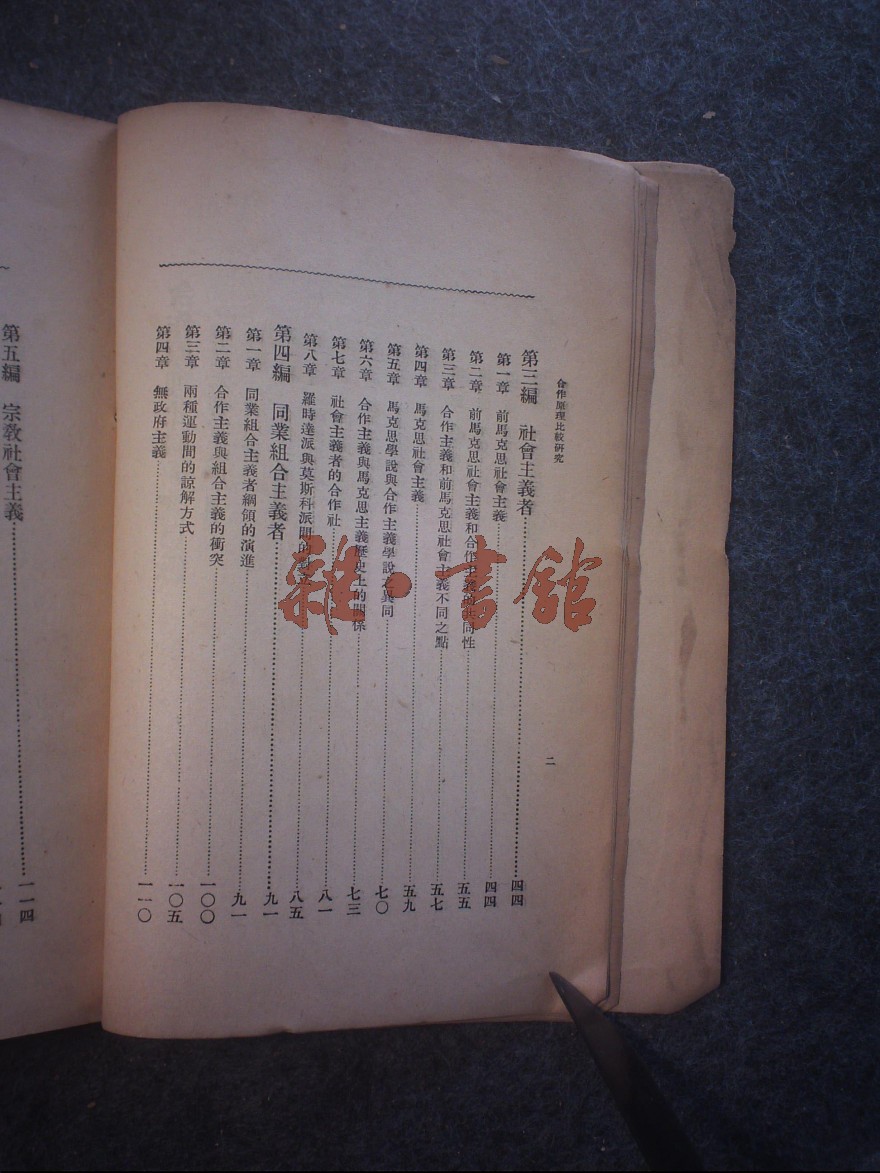 合作原理比較研究
二
第三編 社會主義者 四四
第一章 前馬克思社會主義 四四
第二章 前馬克思社會主義和合作主義的共同性 五五
第三章 合作主義和前馬克思社會主義不同之點 五七
第四章 馬克思社會主義 五九
第五章 馬克思學說與合作主義學說之異同 七〇
第六章 合作主義與馬克思主義歷史上的關係 七三
第七章 社會主義者的合作社 八一
第八章 羅時達派與莫斯科派間的 八五
第四編 同業組合主義者 九一
第一章 同業組合主義者綱領的演進 九一
第二章 合作主義與組合主義的衝突 一〇〇
第三章 兩種運動間的諒解方式 一〇五
第四章 無政府主義 一一〇
第五編 宗教社會主義 一一四
雜·書館